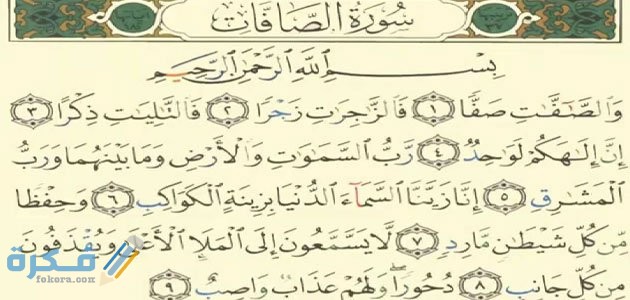 سُورَةُ الصَّافَّاتِ
بِسْمِ ٱللَّهِ ٱلرَّحْمَٰنِ ٱلرَّحِيمِ
وَٱلصَّٰٓفَّٰتِ صَفًّا ١ فَٱلزَّٰجِرَٰتِ زَجْرًا ٢ فَٱلتَّٰلِيَٰتِ ذِكْرًا ٣
إِنَّ إِلَٰهَكُمْ لَوَٰحِدٌ ٤ رَّبُّ ٱلسَّمَٰوَٰتِ وَٱلْأَرْضِ وَمَا بَيْنَهُمَا وَرَبُّ
ٱلْمَشَٰرِقِ ٥ إِنَّا زَيَّنَّا ٱلسَّمَآءَ ٱلدُّنْيَا بِزِينَةٍ ٱلْكَوَاكِبِ ٦ وَحِفْظًا
مِّن كُلِّ شَيْطَٰنٍ مَّارِدٍ ٧ لَّا يَسَّمَّعُونَ إِلَى ٱلْمَلَإِ ٱلْأَعْلَىٰ وَيُقْذَفُونَ
مِن كُلِّ جَانِبٍ ٨ دُحُورًا وَلَهُمْ عَذَابٌ وَاصِبٌ ٩
فكرة
fokera.com